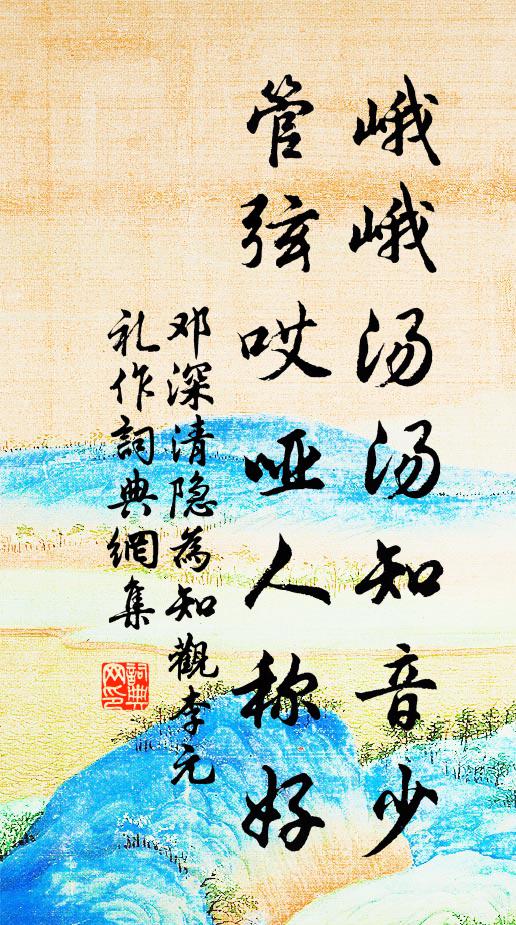 峨峨汤汤知音少
管弦哎哑人称好
邓深清隐为知觀李元
礼作詞典網集
詞典
网印